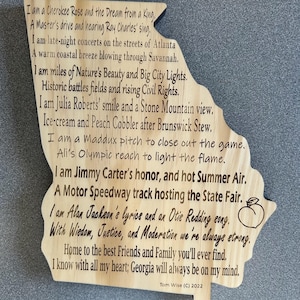 I am a Cherokee Rose and the Dream from a King.
A Master's drive and hearing Ray Charles' sing.
I am late-night concerts on the streets of Atlanta
A warm coastal breeze blowing through Savannah.
I am miles of Nature's Beauty and Big City Lights.
Historic battles fields and rising Civil Rights.
I am Julia Roberts' smile and a Stone Mountain view.
Ice-cream and Peach Cobbler after Brunswick Stew.
I am a Maddux pitch to close out the game.
Ali's Olympic reach to light the flame.
I am Jimmy Carter's honor, and hot Summer Air.
A Motor Speedway track hosting the State Fair.
I am Alan Jackson's lyrics and an Otis Redding song.
With Wisdom, Justice, and Moderation we're always strong.
Home to the best Friends and Family you'll ever find.
I know with all my heart Georgia will always be on my mind.
Tom Wise (C) 2022